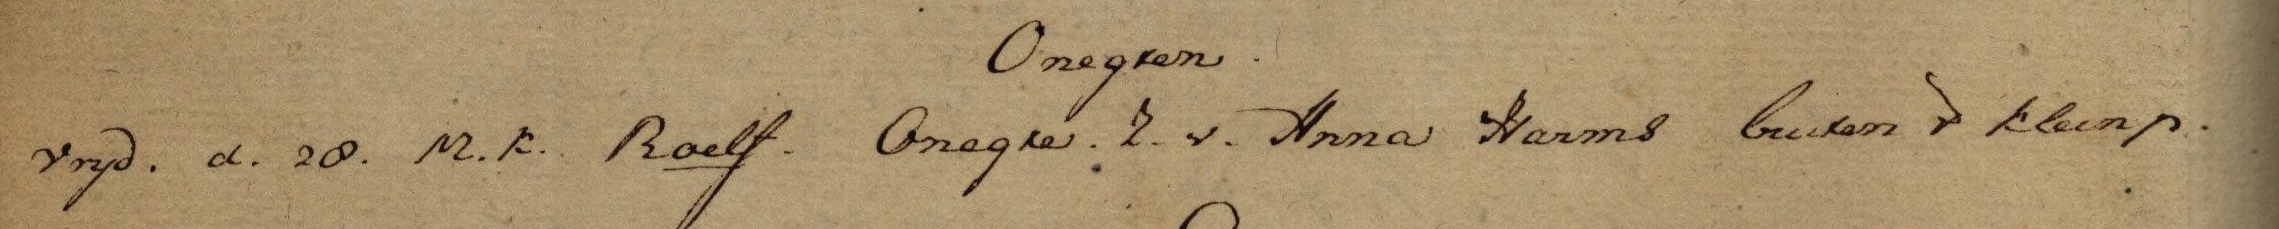 Onegten.
vryd. d. 28. M. K. Roelf. Onegte. Z. v. Anna Harms buiten d kleinp.